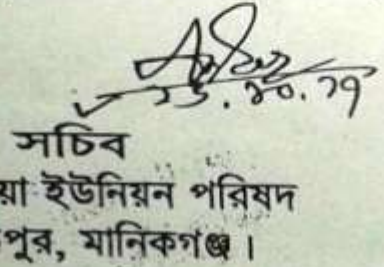 ২৬.১০.১৭
সচিব
য়া ইউনিয়ন পরিষদ
পুর, মানিকগঞ্জ।